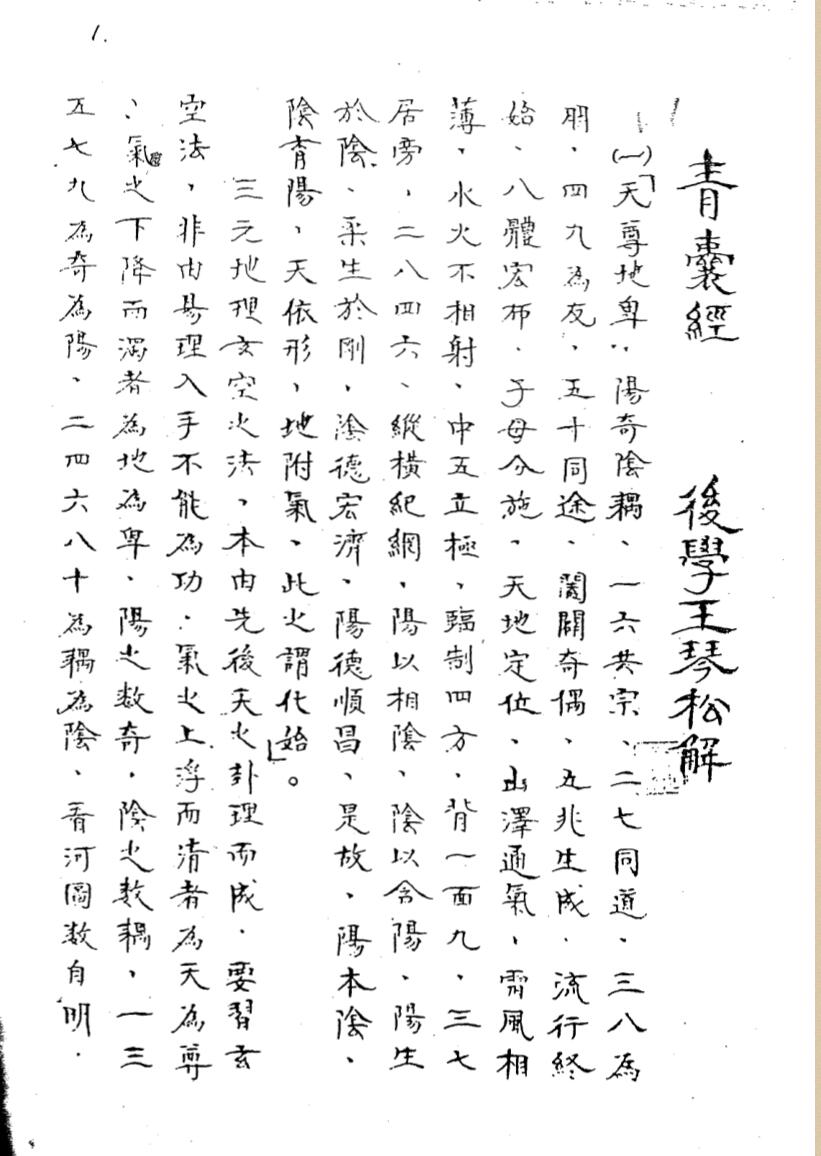 1.
青囊經　後學王琴松解
(一)「天尊地卑、陽奇陰耦、一六共宗、二七同道、三八為
朋、四九為友、五十同途、闔闢奇偶、五兆生成、流行終
始、八體宏布、子母分施、天地定位、山澤通氣、雷風相
薄、水火不相射、中五立極、臨制四方、背一面九、三七
居旁、二八四六、縱橫紀網、陽以相陰、陰以含陽、陽生
於陰、柔生於剛、陰德宏濟、陽德順昌、是故、陽本陰、
陰育陽、天依形、地附氣、此之謂化始」。
三元地理玄空之法、本由先後天之卦理而成、要習玄
空法、非由易理入手不能為功、氣之上浮而清者為天為尊
、氣之下降而濁者為地為卑、陽之数奇、陰之数耦、一三
五七九為奇為陽、二四六八十為耦為陰、看河圖数自明．